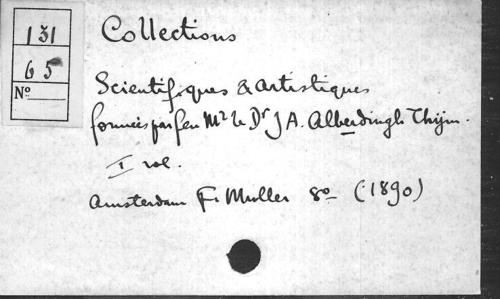 131
65
Nº
Collections
Scientifiques & artistiques
formées par feu Mr le Dr J A. Alberdingk Thijm.
I vol.
Amsterdam F. Muller 8º (1890)